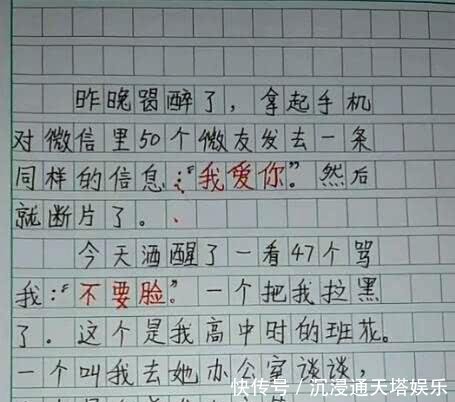 昨晚喝醉了，拿起手机
对微信里50个微友发去一条
同样的信息：“我爱你”。然后
就断片了。
今天酒醒了一看47个骂
我：“不要脸”。一个把我拉黑
了．这个是我高中时的班花。
一个叫我去她办公室谈谈，
快传号／沉浸通天塔娱乐